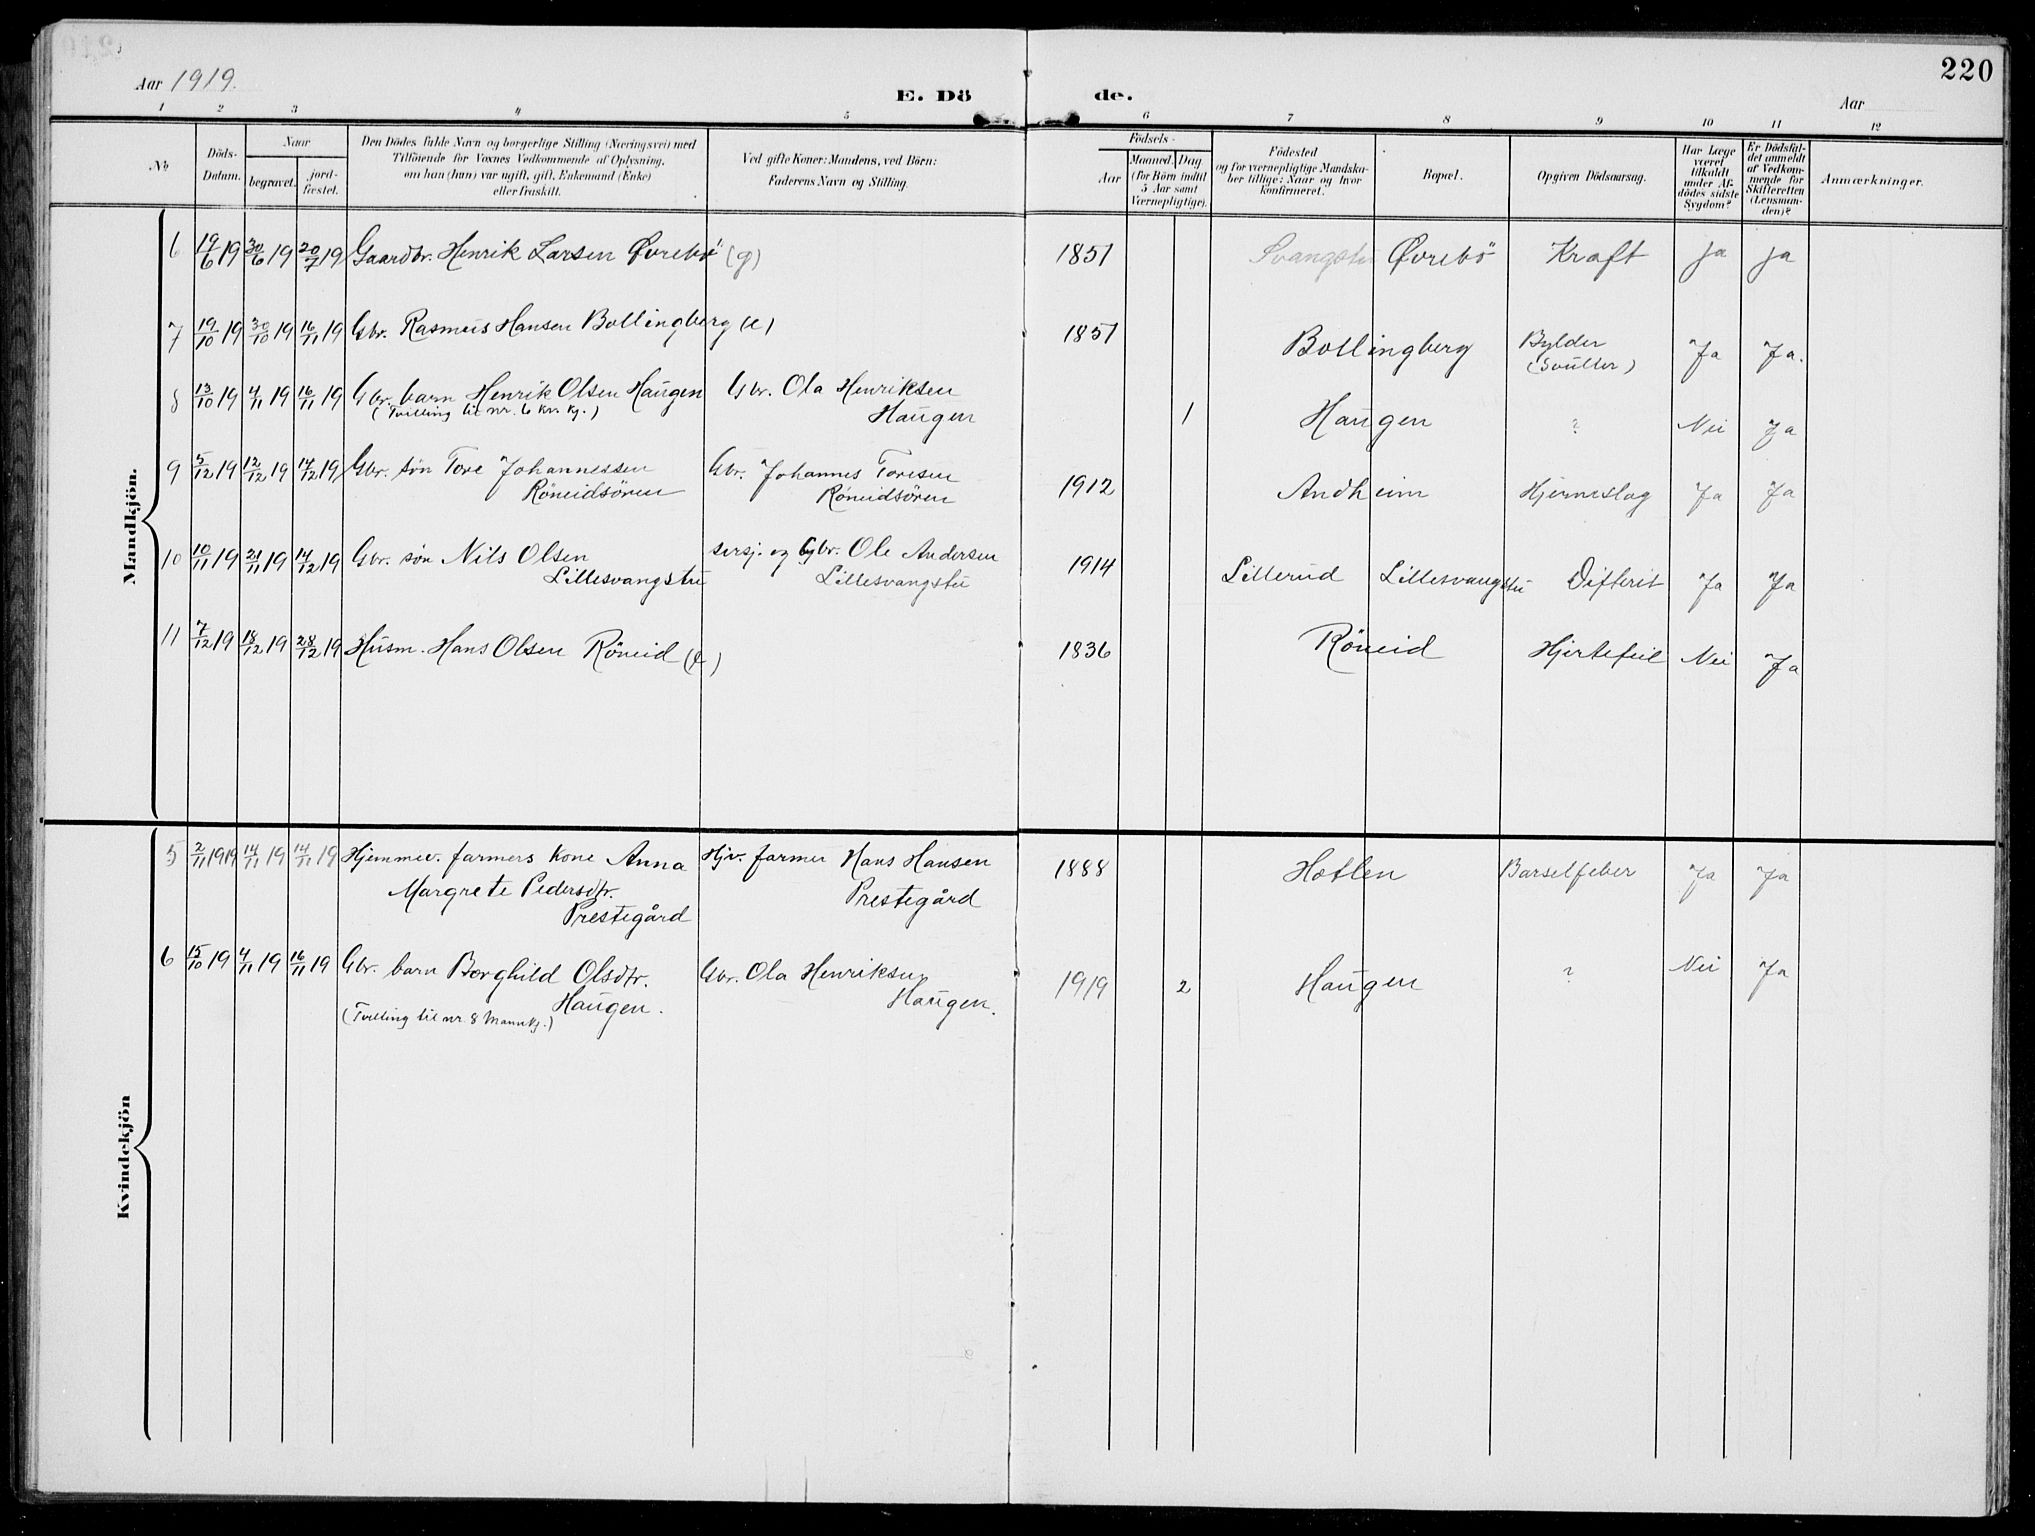 220
Aar 1919.
E. Dö
de.
Aar
1 2 3 4 5 6 7 8 9 10 11 12
No
Döds-
Datum.
Naar
begravet.
jord-
fæstet.
Den Dödes fulde Navn og borgerlige Stilling (Næringsvei) med
Tilföiende for Voxnes Vedkommende af Oplysning,
om han (hun) var ugift, gift, Enkemand (Enke)
eller fraskilt.
Ved gifte Koner: Mandens, ved Börn:
Faderens Navn og Stilling.
Födsels-
Aar
Maaned. Dag
(for Börn indtil
5 Aar samt
Værnepligtige).
Födested
og for værnepligtige Mandska-
ber tillige: Naar og hvor
konfirmeret.
Bopæl.
Opgiven Dödsaarsag.
Har Læge
været
tilkaldt
under Af-
dödes sidste
Sygdom?
Er Dödsfal-
det anmeldt
af Vedkom-
mende for
Skifteretten
(Lensman-
den)?
Anmærkninger.
Mandkjön.
6 19/6 19 30/6 19 20/7 19 Gaardbr. Henrik Larsen Øvrebö (g) 1851 Svangstu Øvrebö Kraft Ja Ja
7 19/10 19 30/10 19 16/11 19 Gbr. Rasmus Hansen Bollingberg (e) 1851 Bollingberg Bylder Ja Ja.
8 13/10 19 4/11 19 16/11 19 Gbr. barn Henrik Olsen Haugen Gbr. Ola Henriksen
(Tvilling til nr. 6 kv. kj.) Haugen 1 Haugen ? Nei Ja
9 5/12 19 12/12 19 14/12 19 Gbr. søn Tore Johannessen Gbr. Johannes Toresen
Röneidsören Röneidsören 1912 Andheim Hjerneslag Ja Ja
10 10/11 19 21/11 19 14/12 19 Gbr. søn Nils Olsen sersj. og Gbr. Ole Andersen
Lillesvangstu Lillesvangstu 1914 Lillerud Lillesvangstu Difterit Ja Ja
11 7/12 19 18/12 19 28/12 19 Husm. Hans Olsen Röneid (e) 1836 Röneid Hjertefeil Nei Ja
Kvindekjön
5 2/11 1919 14/11 19 14/11 19 Hjemmev. farmers kone Anna Hjv. farmer Hans Hansen
Margrete Pedersdtr. Prestegård 1888 Hotlen Barselfeber Ja Ja
Prestegård
6 15/10 19 4/11 19 16/11 19 Gbr. barn Borghild Olsdtr. Gbr. Ola Henriksen
Haugen. Haugen. 1919 2 Haugen ? Nei Ja
(Tvilling til nr. 8 Mannkj.)